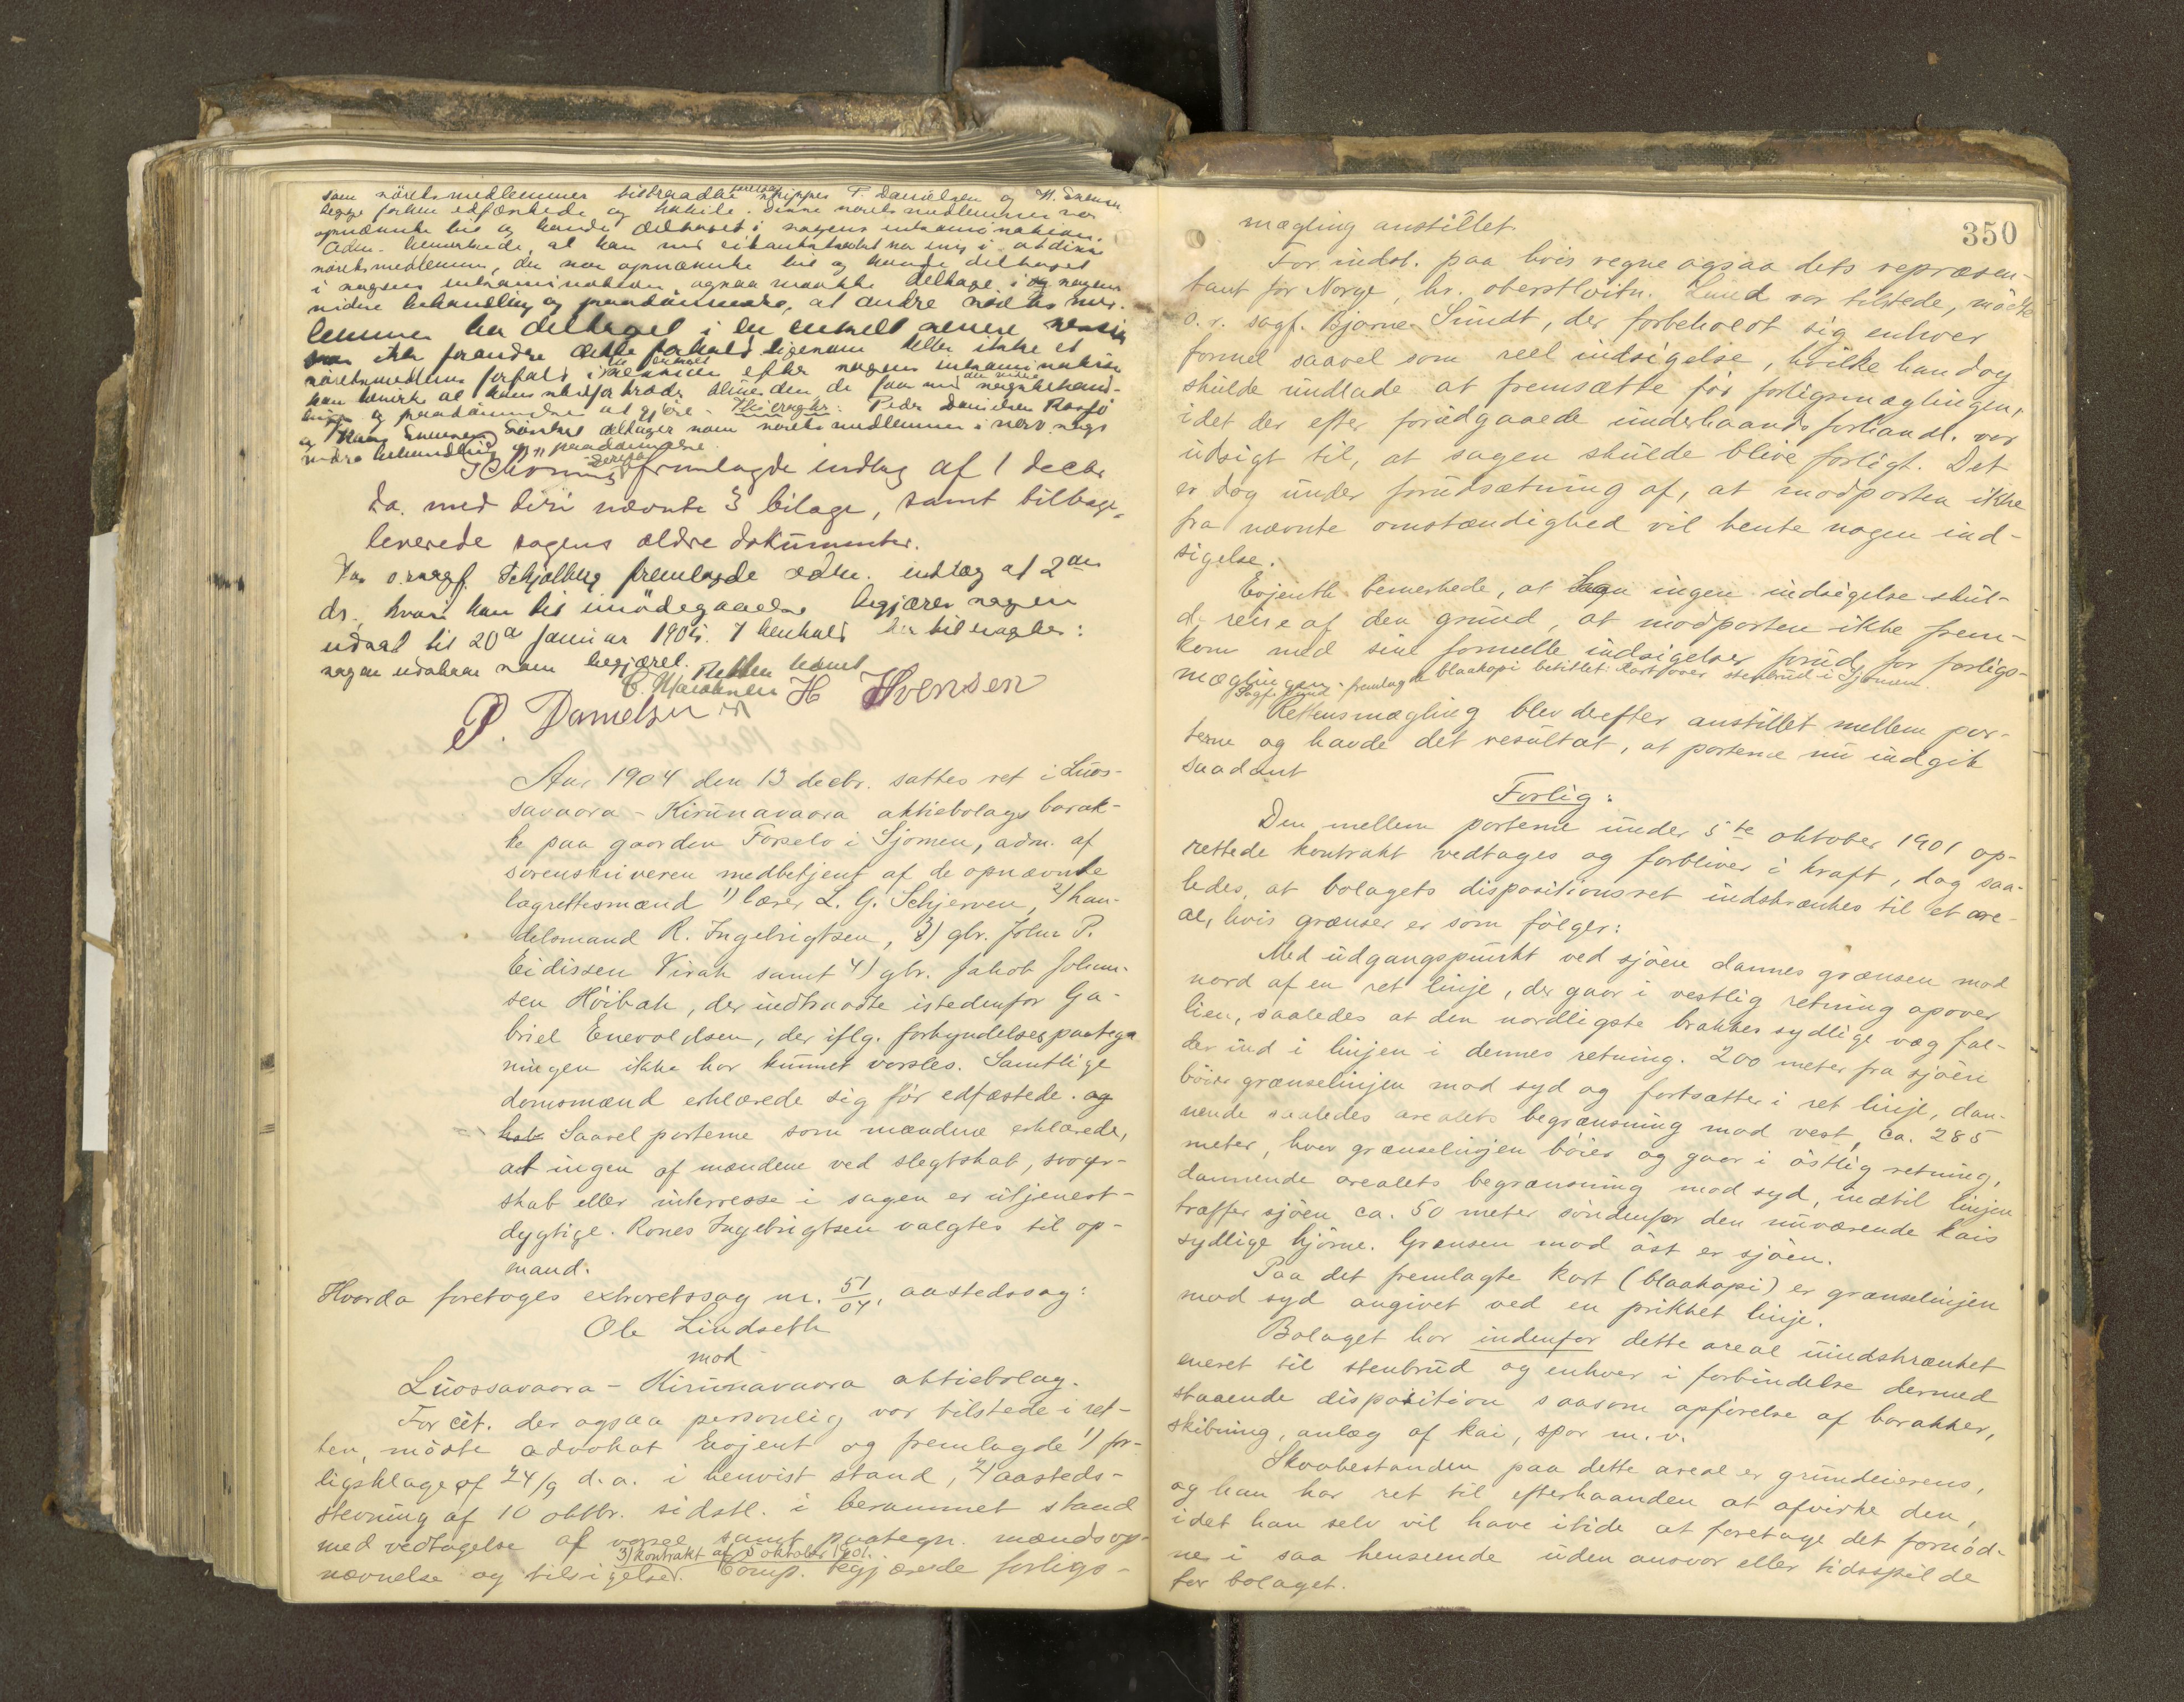 som söretsmedlemmer tiltraadte skipper P. Danielsen og H. Evensen
begge forhen edfæstede og habile. Disse sörets medlemmer var
opnævnte til og havde deltaget i sagens
bemærkede, at han var enig i at disse
söretsmedlemmer, der var opnævnte til og havde deltaget
i sagens ogsaa maatte deltage i sagens
videre behandling og paadömmelse, at andre
lemmer har deltaget i en enkelt senere session
ikke forandre dette forhold ligesom eller ikke et
söretsmedlems forfald i en enkelt session efter sagens
kan bemærke at
og paadömmelse at gjöre. Peder Danielsen
og Hans Evensen deltager som söretsmedlemmer i nærv. sags
videre behandling og paadömmelse.
Schönning derefter fremlagde indlæg af 1 decbr
d.a. med deri nævnte 3 bilage, samt tilbage-
leverede sagens ældre dokumenter.
For o.r.sagf. Schjølberg fremlagde indlæg af 2den
ds., hvori han til imödegaaelse begjærer sagen
udsat til 20de januar 1905. I henhold hertil
sagen udsættes som begjæret.
Retten hævet
P. Danielsen H Evensen
Aar 1904 den 13 decbr. sattes ret i Luos-
savaara-Kirunavaara aktiebolags barak-
ke paa gaarden Forselv i Sjomen, adm. af
sorenskriveren medbetjent af de opnævnte
lagrettesmænd 1) lærer L. G. Schjerven, 2) han-
delsmand R. Ingebrigtsen, 3) gbr. John P.
Eidissen Virak samt 4) gbr. Jakob Johan-
sen Höibak, der indtraadte istedenfor Ga-
briel Enevoldsen, der iflg. forkyndelsespaateg-
ningen ikke har kunnet varsles. Samtlige
domsmænd erklærede sig för edfæstede. og
hab Saavel parterne som mændene erklærede,
at ingen af mændene ved slegtskab, svoger-
skab eller interresse i sagen er utjenest-
dygtige. Rones Ingebrigtsen valgtes til op-
mand.
Hvorda foretoges extraretssag nr. 51/04, aastedssag:
Ole Lindseth
mod
Luossavaara-Kirunavaara aktiebolag.
For cit. der ogsaa personlig var tilstede i ret-
ten, mödte advokat Evjent og fremlagde 1) for-
ligsklage af 24/9 d.a. i henvist stand, 2) aasteds-
stevning af 10 oktbr. sidstl. i berammet stand
med vedtagelse af varsel samt paategn. mændsop-
3) kontrakt af 5 oktober 1901.
nævnelse og tilsigelse. Comp. begjærede forligs-
350
mægling anstillet.
For indst. paa hvis vegne ogsaa dets repræsen-
tant for Norge, hr. oberstløitn. Lund var tilstede, mödte
o.r. sagf. Bjarne Sundt, der forbeholdt sig enhver
formel saavel som reel indsigelse, hvilke han dog
skulde undlade at fremsætte för forligsmæglingen,
idet der efter forudgaaede underhaandsforhandl. var
udsigt til, at sagen skulde blive forligt. Det
er dog under forudsætning af, at modparten ikke
fra nævnte omstændighed vil hente nogen ind-
sigelse.
Evjenth bemerkede, at han ingen indsigelse skul-
de reise af den grund, at modparten ikke frem-
kom med sine formelle indsigelser forud for forligs-
mæglingen.
Sagf. Sundt fremlagde blaakopi betitlet: Kart over stenbrud i Sjomen.
Rettensmægling blev derefter anstillet mellem par-
terne og havde det resultat, at parterne nu indgik
saadant
Forlig:
Den mellem parterne under 5te oktober 1901 op-
rettede kontrakt vedtages og forbliver i kraft, dog saa-
ledes, at bolagets dispositionsret indskrænkes til et are-
al, hvis grænser er som fölger:
Med udgangspunkt ved sjöen dannes grænsen mod
nord af en ret linje, der gaar i vestlig retning opover
lien, saaledes at den nordligste brakkes sydlige væg fal-
der ind i linjen i dennes retning. 200 meter fra sjöen
böier grænselinjen mod syd og fortsætter i ret linje, dan-
nende saaledes arealets begrænsning mod vest, ca. 285
meter, hvor grænselinjen böier og gaar i östlig retning,
dannende arealets begrænsning mod syd, indtil linjen
træffer sjöen ca. 50 meter söndenfor den nuværende kais
sydlige hjörne. Grænsen mod öst er sjöen.
Paa det fremlagte kart (blaakopi) er grænselinjen
mod syd angivet ved en prikket linje.
Bolaget har indenfor dette areal uindskrænket
eneret til stenbrud og enhver i forbindelse dermed
staaende disposition saasom opförelse af barakker,
skibning, anlæg af kai, spor m.v.
Skovbestanden paa dette areal er grundeierens,
og han har ret til efterhaanden at afvirke den,
idet han selv vil have itide at foretage det fornöd-
ne i saa henseende uden ansvar eller tidsspilde
for bolaget.